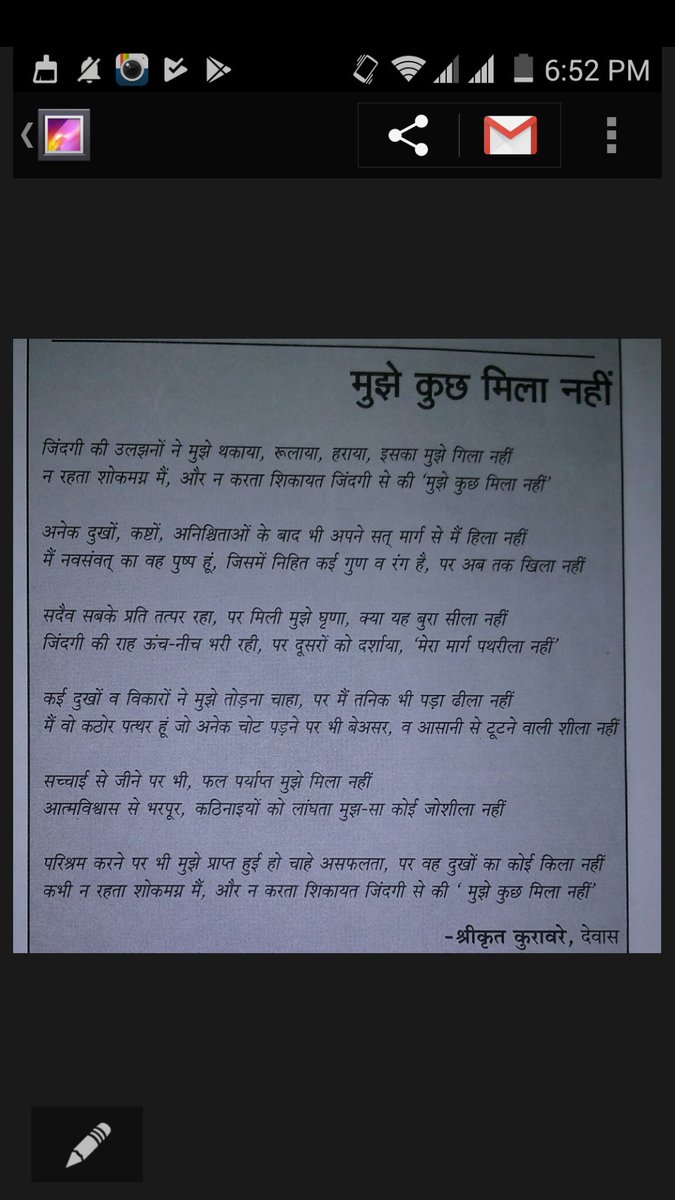 6:52 PM
मुझे कुछ मिला नहीं
जिंदगी की उलझनों ने मुझे थकाया, रूलाया, हराया, इसका मुझे गिला नहीं
न रहता शोकमग्न मैं, और न करता शिकायत जिंदगी से की ‘मुझे कुछ मिला नहीं’
अनेक दुखों, कष्टों, अनिश्चिताओं के बाद भी अपने सत् मार्ग से मैं हिला नहीं
मैं नवसंवत् का वह पुष्प हूं, जिसमें निहित कई गुण व रंग है, पर अब तक खिला नहीं
सदैव सबके प्रति तत्पर रहा, पर मिली मुझे घृणा, क्या यह बुरा सीला नहीं
जिंदगी की राह ऊंच-नीच भरी रही, पर दूसरों को दर्शाया, ‘मेरा मार्ग पथरीला नहीं’
कई दुखों व विकारों ने मुझे तोड़ना चाहा, पर मैं तनिक भी पड़ा ढीला नहीं
मैं वो कठोर पत्थर हूं जो अनेक चोट पड़ने पर भी बेअसर, व आसानी से टूटने वाली शीला नहीं
सच्चाई से जीने पर भी, फल पर्याप्त मुझे मिला नहीं
आत्मविश्वास से भरपूर, कठिनाइयों को लांघता मुझ-सा कोई जोशीला नहीं
परिश्रम करने पर भी मुझे प्राप्त हुई हो चाहे असफलता, पर वह दुखों का कोई किला नहीं
कभी न रहता शोकमग्न मैं, और न करता शिकायत जिंदगी से की ‘ मुझे कुछ मिला नहीं’
-श्रीकृत कुरावरे, देवास